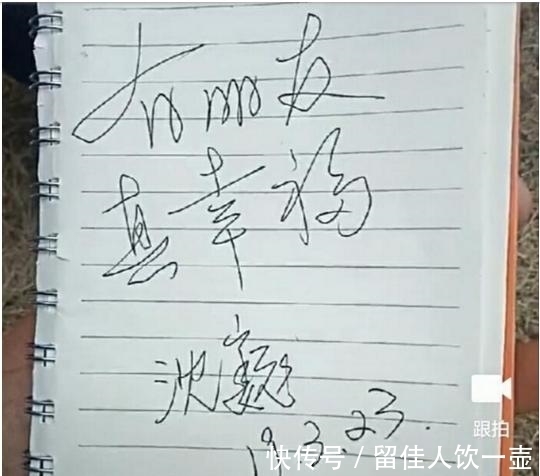 有丽友
真幸福
沈巍
19.3.23.
跟拍
快传号 / 留佳人饮一壶